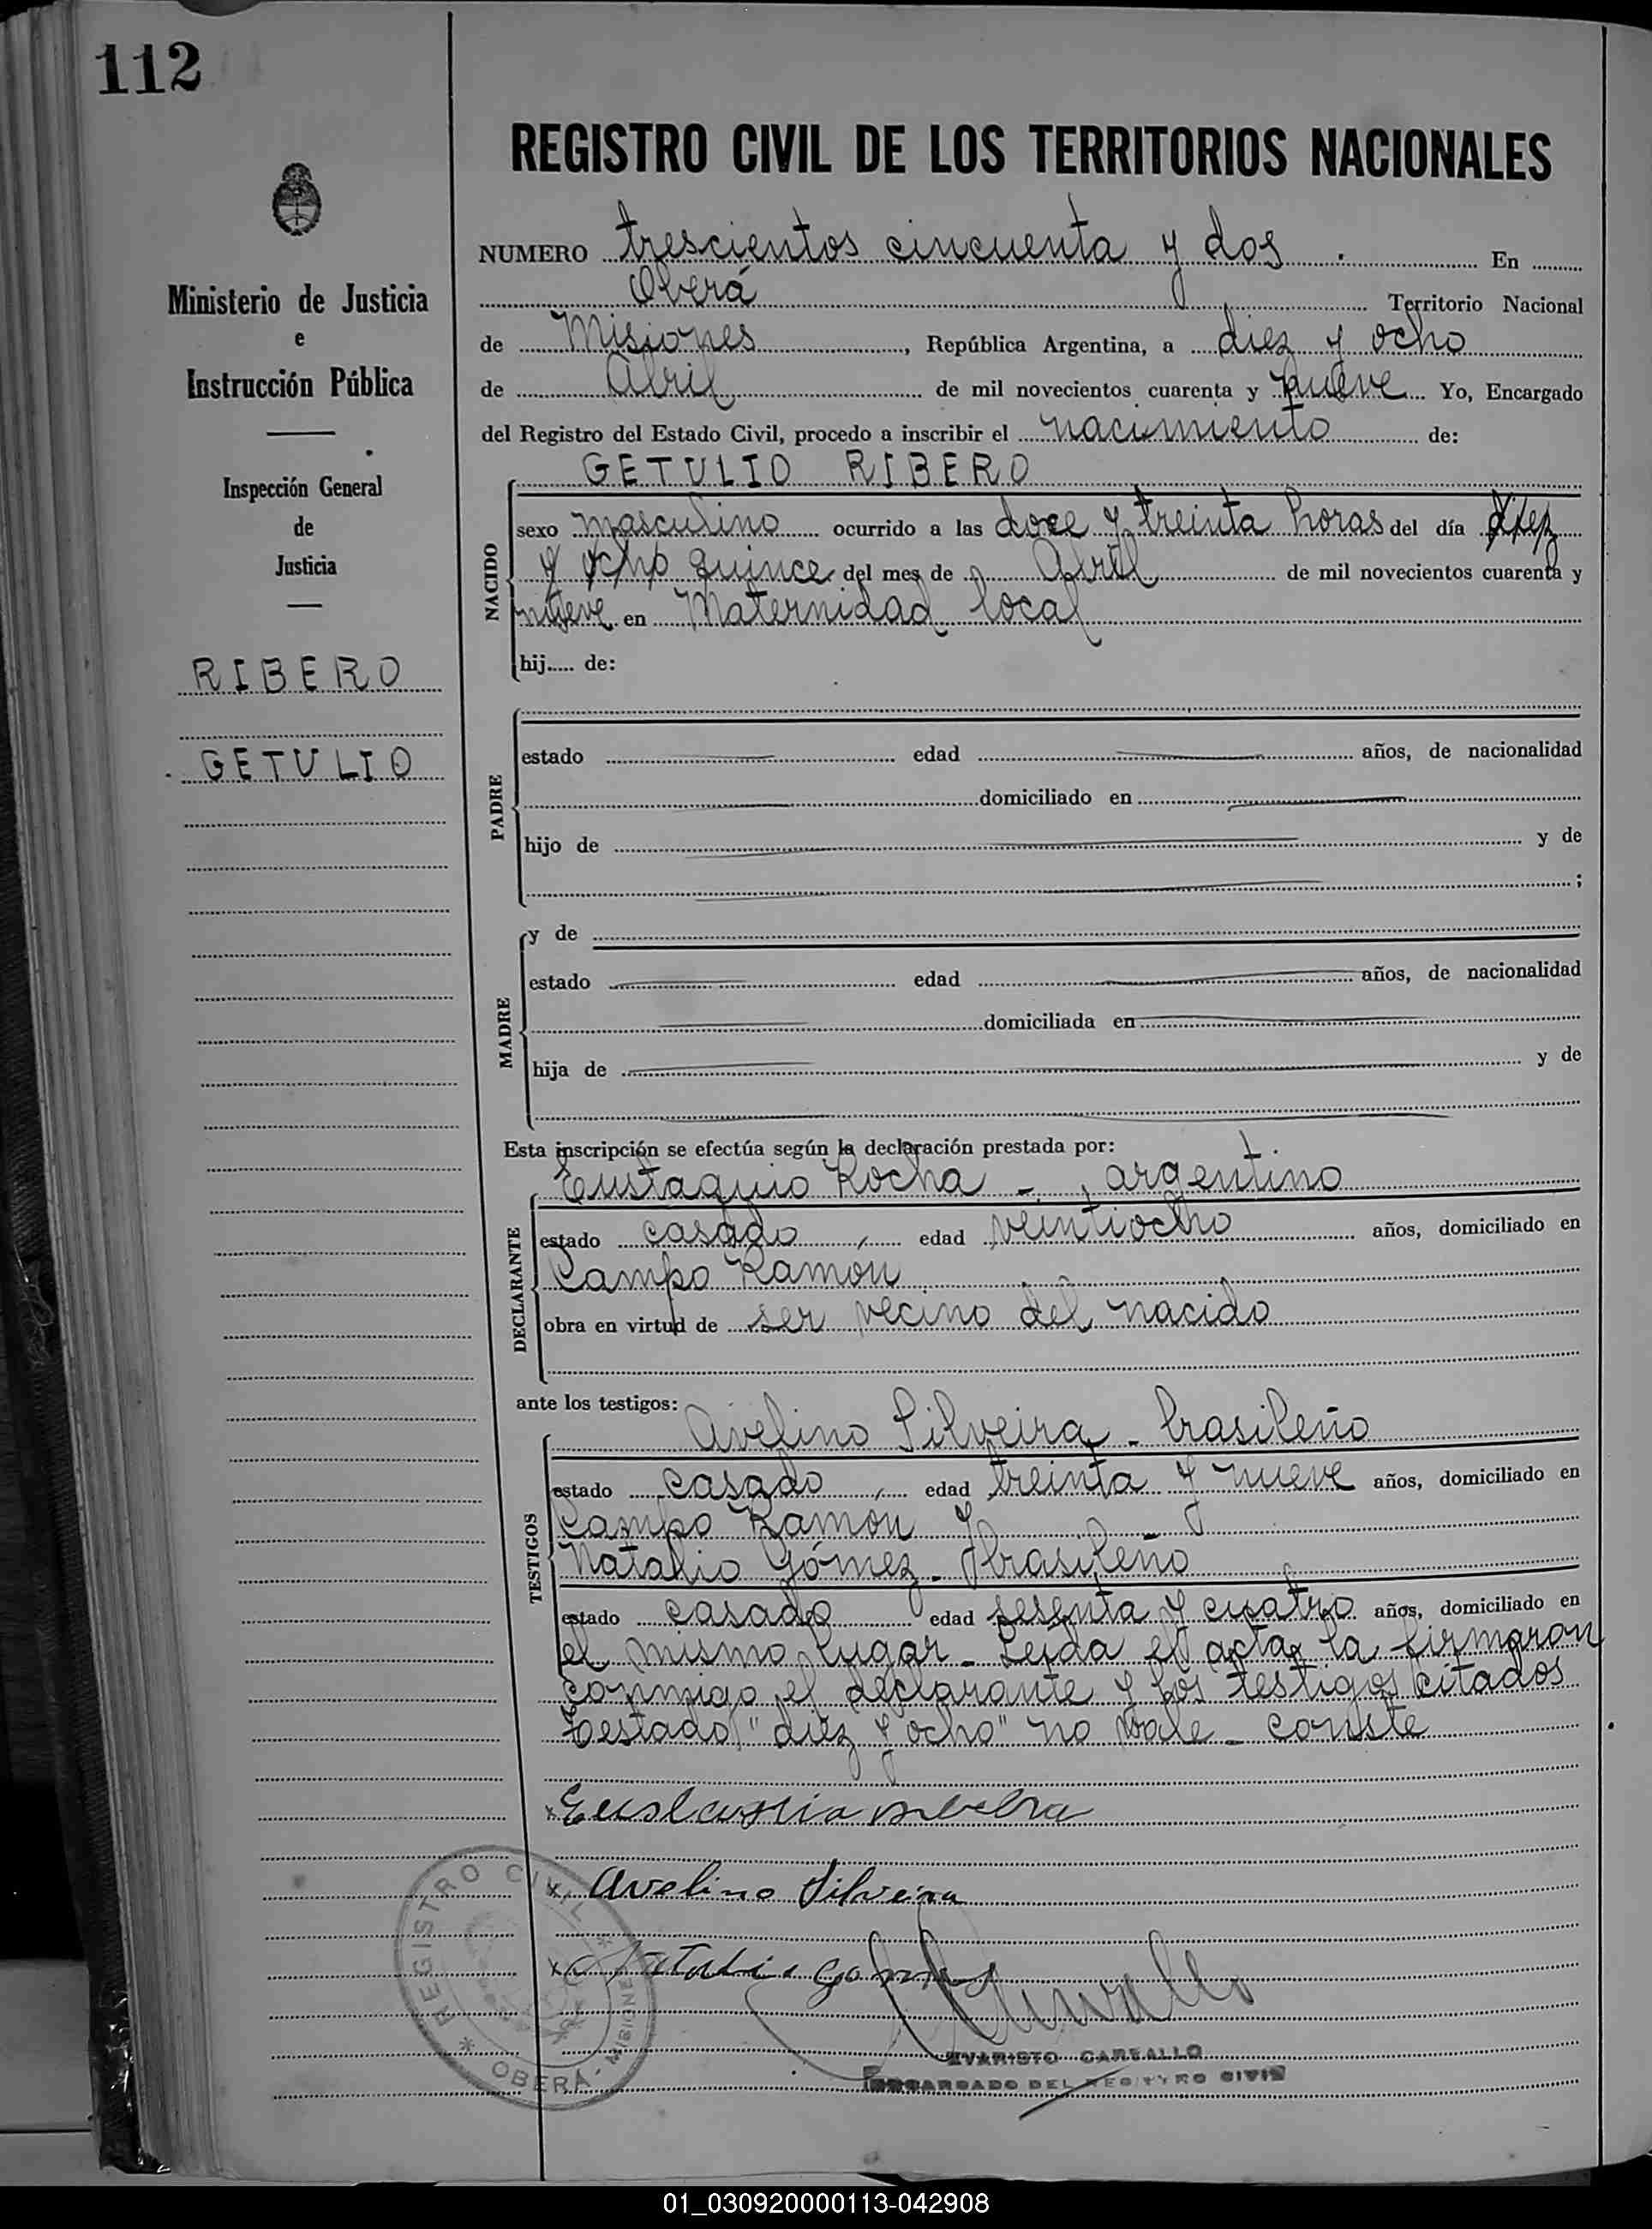 112
REGISTRO CIVIL DE LOS TERRITORIOS NACIONALES
Ministerio de Justicia
e
Instrucción Pública
Inspección General
de
Justicia
RIBERO
GETULIO
NUMERO trescientos cincuenta y dos En
Oberá Territorio Nacional
de Misiones, República Argentina, a diez y ocho
de Abril de mil novecientos cuarenta y nueve Yo, Encargado
del Registro del Estado Civil, procedo a inscribir el nacimiento de:
GETULIO RIBERO
NACIDO
sexo masculino ocurrido a las doce y treinta horas del día diez
y ocho quince del mes de Abril de mil novecientos cuarenta y
nueve en Maternidad local
hij..... de:
PADRE
estado edad años, de nacionalidad
domiciliado en
hijo de y de
;
MADRE
y de
estado edad años, de nacionalidad
domiciliada en
hija de y de
Esta inscripción se efectúa según la declaración prestada por:
DECLARANTE
Eustaquio Rocha -, argentino
estado casado, edad veintiocho años, domiciliado en
Campo Ramon
obra en virtud de ser vecino del nacido
ante los testigos:
TESTIGOS
Avelino Silveira - brasileño
estado casado, edad treinta y nueve años, domiciliado en
Campo Ramón y -
Natalio Gómez - brasileño
estado casado edad sesenta y cuatro años, domiciliado en
el mismo lugar - Leída el acta, la firmaron
conmigo el declarante y los testigos citados
Testado "diez y ocho" no vale - conste
x Avelino Silveira
x Natalio Gomez
REGISTRO CIVIL * OBERÁ - MISIONES *
EVARISTO CARBALLO
ENCARGADO DEL REGISTRO CIVIL
01_030920000113-042908